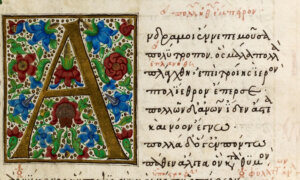 Ἄνδρα μοι ἔννεπε μοῦσα
πολύτροπον ὃς μάλα πολλὰ
πλάγχθη ἐπεὶ τροίης ἱερὸν
πτολίεθρον ἔπερσε
πολλῶν δ' ἀνῶν ἴδεν ἄστεα
καὶ νόον ἔγνω
πολλὰ δ' ὅγ' ἐν πόντω
πάθεν ἄλγεα ὃν κατὰ θυμὸν